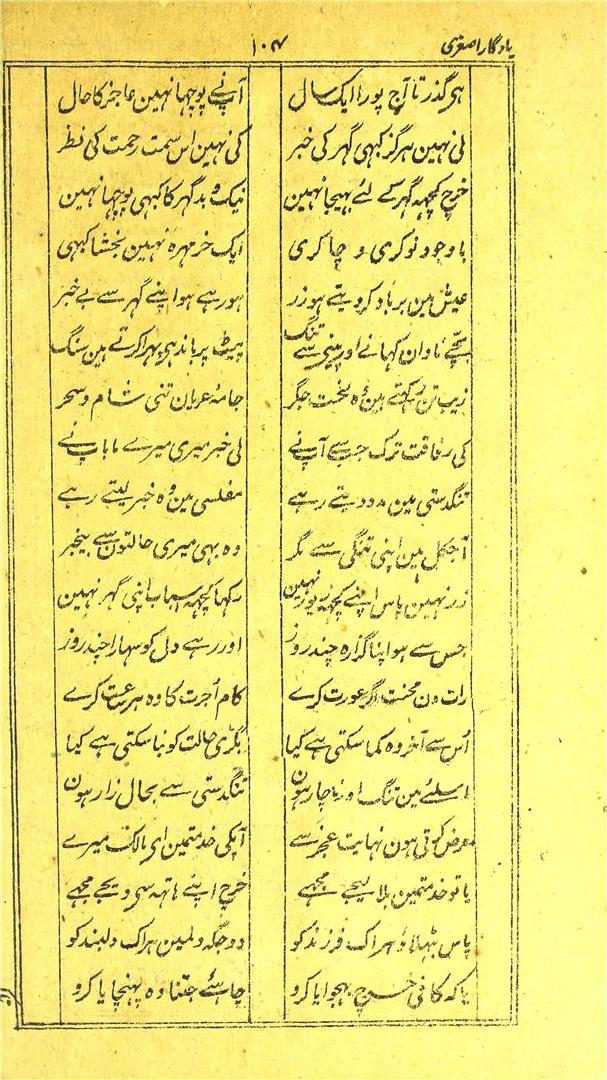 یادگار اصغری ۱۰۴
ہی گذرتا آج پورا ایک سال آپنے پوچھا نہین عاجز کا حال
لی نہین ہرگز کبہی گہر کی خبر کی نہین اس سمت رحمت کی نظر
خرچ کچہہ گہر کے لئے بہیجا نہین نیک و بد گہر کا کبہی پوچہا نہین
با وجود نوکری و چاکری ایک خرمہرہ نہین بخشا کبہی
عیش مین برباد کر دیتے ہو زر ہو رہے ہو اپنے گہر سے بے خبر
بچے نادان کہانے اور پینے سے تنگ پیٹ پر باندہی پہرا کرتے ہین سنگ
زیب تن رکہتے ہین وہ لخت جگر جامۂ عریان تنی شام و سحر
کی رفاقت ترک جب سے آپنے لی خبر میری میرے ما باپ نے
تنگدستی مین مدد دیتے رہے مفلسی مین وہ خبر لیتے رہے
آجکل ہین اپنی تنگی سے مگر وہ بہی میری حالتون سے بیخبر
زر نہین پاس اپنے کچہہ زیور نہین رکہا کچہہ اسباب اپنی گہر نہین
جس سے ہو اپنا گزارہ چند روز اور رہے دل کو سہارا چند روز
رات دن محنت اگر عورت کرے کام اُجرت کا وہ ہر ساعت کرے
اُس سے آخر وہ کما سکتی ہے کیا بگڑی حالت کو بنا سکتی ہے کیا
اسلئے مین تنگ اور ناچار ہون تنگدستی سے بحال زار ہون
عرض کرتی ہون نہایت عجز سے آپکی خدمتمین ای مالک میرے
یا تو خدمتمین بلا لیجے مجہے خرچ اپنے ہاتہہ سی دیجے مجہے
پاس بٹہلاؤ ہر اک فرزند کو دو جگہ دلمین ہر اک دلبند کو
یا کہ کافی خرچ بہجوایا کرو چاہئے جتنا وہ پہنچایا کرو